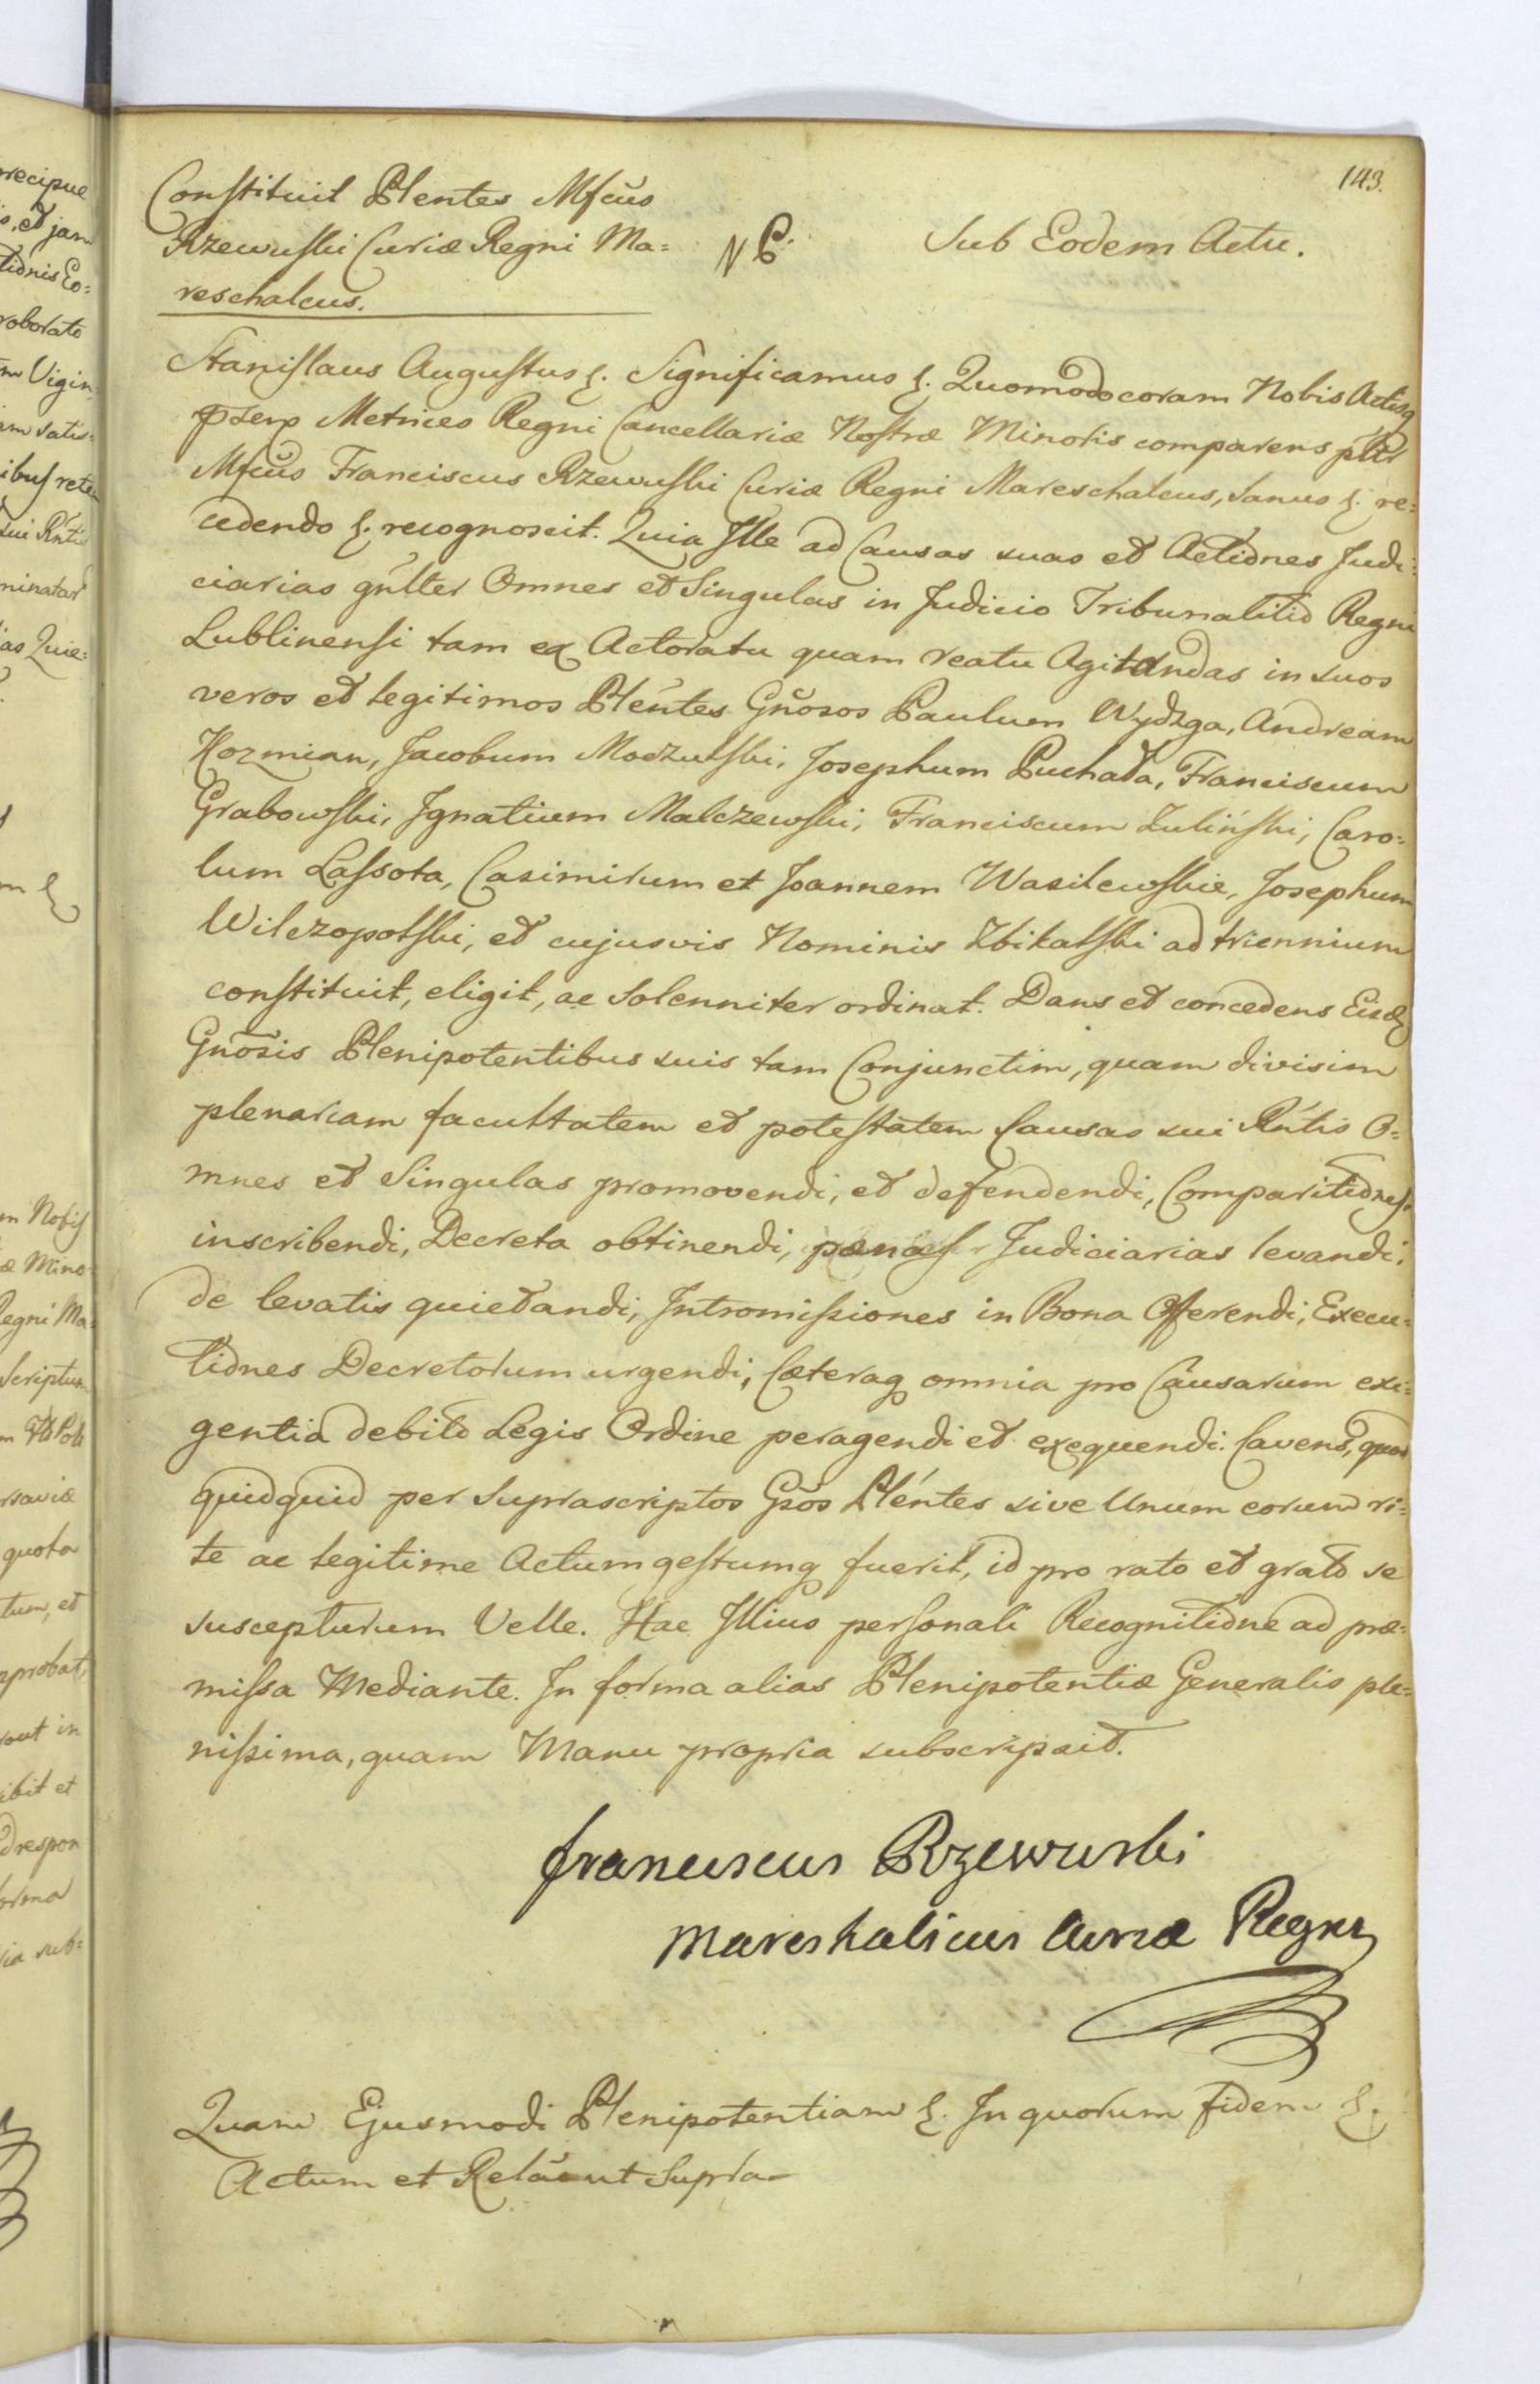 143.
Constituit Plentes Mfcus
Rzewuski Curiæ Regni Ma=
reschalcus.
Sub Eodem Actu.
Stanislaus Augustus &. Significamus &. Quomodo coram Nobis Actisq
Metrices Regni Cancellariæ Nostræ Minoris comparens pltr
Mfcus Franciscus Rzewuski Curiæ Regni Mareschalcus, Sanus &. re=
cedendo &. recognoscit. Quia Ille ad Causas suas et Actiones Judi=
ciarias gnlter Omnes et Singulas in Judicio Tribunalitio Regni
Lublinensi tam ex Actoratu quam reatu Agitandas in suos
veros et legitimos Plentes Gnosos Paulum Wydzga, Andream
Kozmian, Jacobum Moczulski, Josephum Puchała, Franciscum
Grabowski, Ignatium Malczewski, Franciscum Zuliński, Caro=
lum Lassota, Casimirum et Joannem Wasilewskie, Josephum
Wilczopolski, et cujusvis Nominis Zbikalski ad triennium
constituit, eligit, ac Solenniter ordinat. Dans et concedens Eisdem
Gnosis Plenipotentibus suis tam Conjunctim, quam divisim
plenariam facultatem et potestatem Causas sui Rntis O=
mnes et Singulas promovendi, et defendendi, Comparitiones
inscribendi, Decreta obtinendi, pænas Judiciarias levandi,
de levatis quietandi, Intromissiones in Bona Offerendi, Execu=
tiones Decretorum urgendi, Cæteraq omnia pro Causarum exi=
gentia debito Legis Ordine peragendi et exequendi. Cavens, quod
quidquid per Suprascriptos Gsos Plentes sive Unum eorund ri=
te ac legitime Actum gestumq fuerit, id pro rato et grato se
suscepturum Velle. Hac Illius personali Recognitione ad præ=
missa Mediante. In forma alias Plenipotentiæ Generalis ple=
nissima, quam Manu propria subscripsit.
franciscus Rzewuski
Mareshalicus Curiæ Regni
Quam Ejusmodi Plenipotentiam &. In quorum fidem &.
Actum et Relã ut Supra